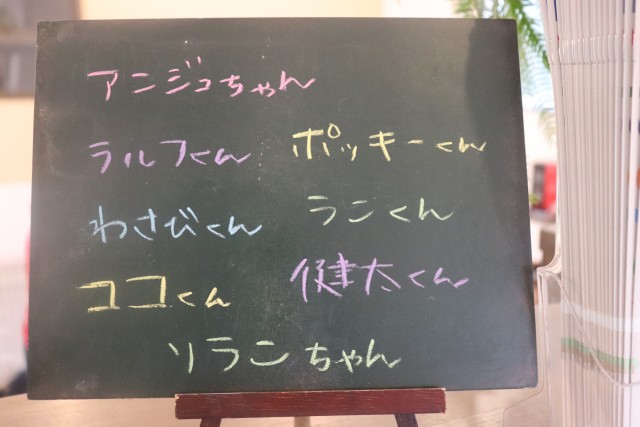 アンジュちゃん
ラルフくん
ポッキーくん
わさびくん
ランくん
ココくん
健太くん
ソランちゃん